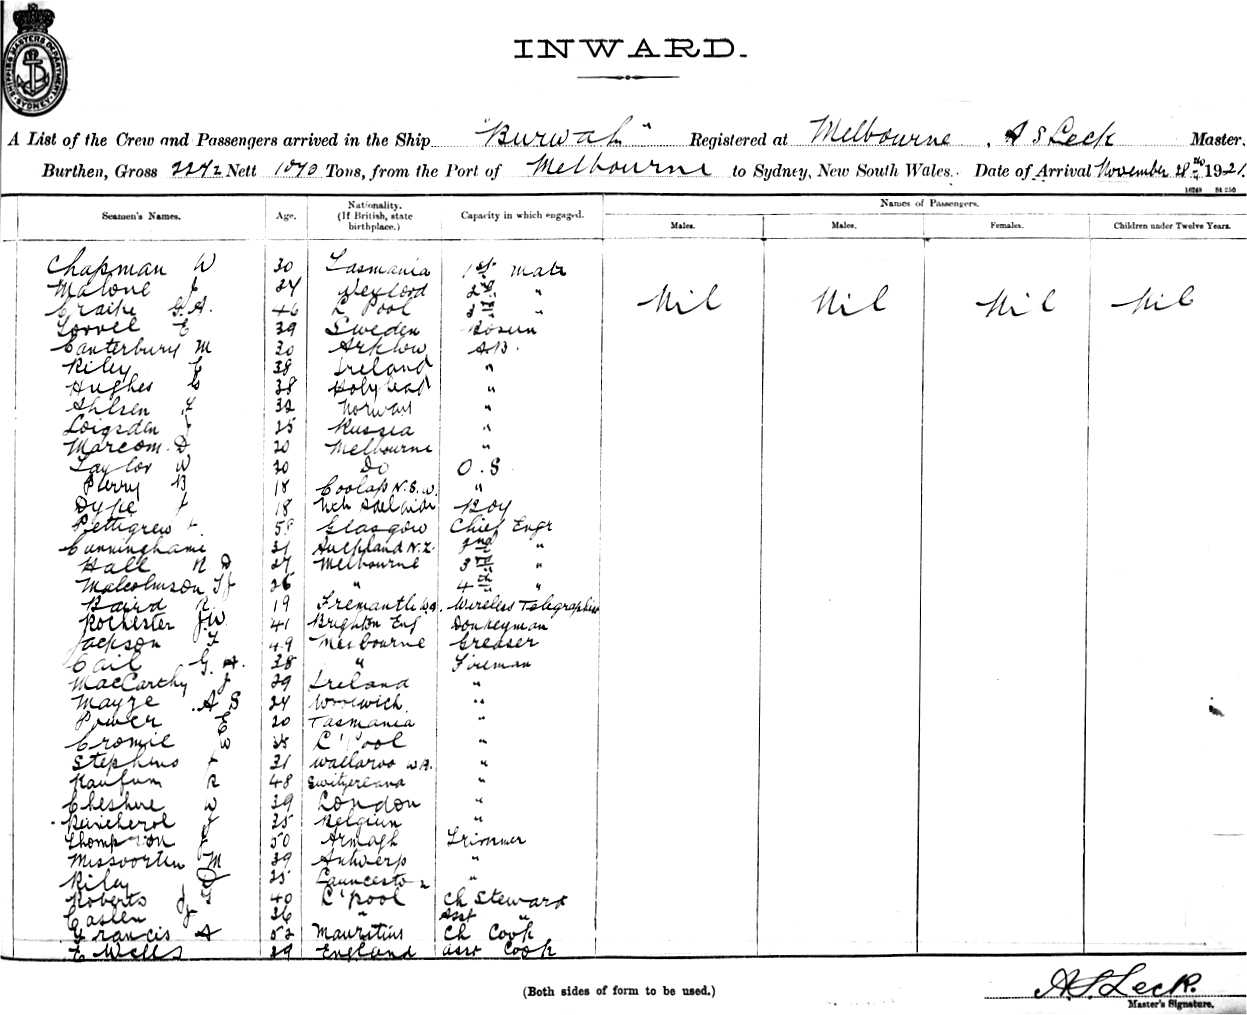 SHIPPING MASTERS DEPARTMENT SYDNEY
INWARD.
A List of the Crew and Passengers arrived in the Ship "Burwah" Registered at Melbourne, A S Leck Master,
Burthen, Gross 2272 Nett 1070 Tons, from the Port of Melbourne to Sydney, New South Wales. Date of Arrival November 28th 1921
Seamen's Names. Age. Nationality. (If British, state birthplace.) Capacity in which engaged. Names of Passengers.
Males. Males. Females. Children under Twelve Years.
Chapman W 30 Tasmania 1st Mate
Malone J 24 Wexford 2nd "
Nil Nil Nil Nil
Craike G.A. 46 L'Pool 3rd "
E 39 Sweden Bosun
Canterbury M 30 Arklow A.B.
Riley 38 Ireland "
Hughes 38 Holyhead "
Ahlsen 32 Norway "
25 Russia "
Marcom D 20 Melbourne "
Taylor W 20 Do O.S
Perry B 18 N.S.W. "
Dype 18 Nth Adelaide Boy
Pettigrew Glasgow Chief Engr
Cunninghame 31 Auckland N.Z. 2nd "
Hall R D 27 Melbourne 3rd "
Malcolmson 26 " 4th "
Baird R. 19 Fremantle W.A. Wireless Telegraphist
Rochester J W 41 Brighton Eng Donkeyman
Jackson F 49 Melbourne Greaser
Cail G. A. 38 " Fireman
MacCarthy J 29 Ireland "
Mayze A S 24 Woolwich "
Power E 20 Tasmania "
Cromie W 28 L'Pool "
Stephens 31 Wallaroo W.A. "
Kaufum R 48 Switzerland "
Cheshire W 39 London "
35 Belgium "
Thompson J 50 Armagh Trimmer
M 39 Antwerp "
Riley 25 Launceston "
Roberts 40 L'Pool Ch Steward
Caslen J 36 " Asst "
Francis A 52 Mauritius Ch Cook
E Wells 29 England Asst Cook
(Both sides of form to be used.)
A. S. Leck.
Master's Signature.